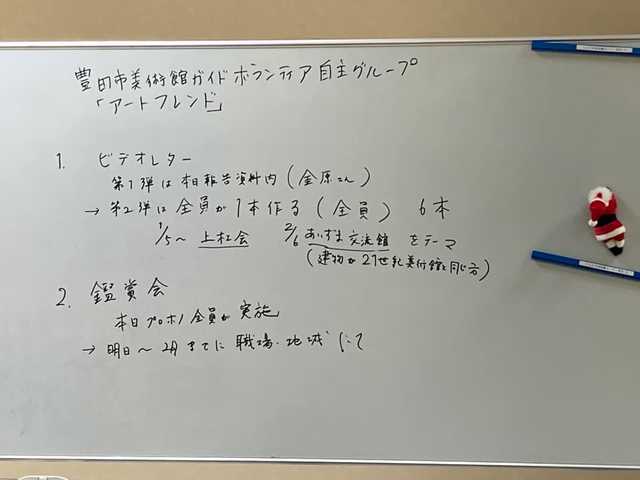 豊田市美術館ガイドボランティア自主グループ
「アートフレンド」
1. ビデオレター
第1弾は本日報告資料内(金原さん)
→ 第2弾は全員が1本作る(全員) 6本
1/5~ 上社会 2/6 あいすま交流館 をテーマ
(建物が21世紀美術館と同じ方)
2. 鑑賞会
本日プロボノ全員が実施
→ 明日~2月までに職場・地域にて